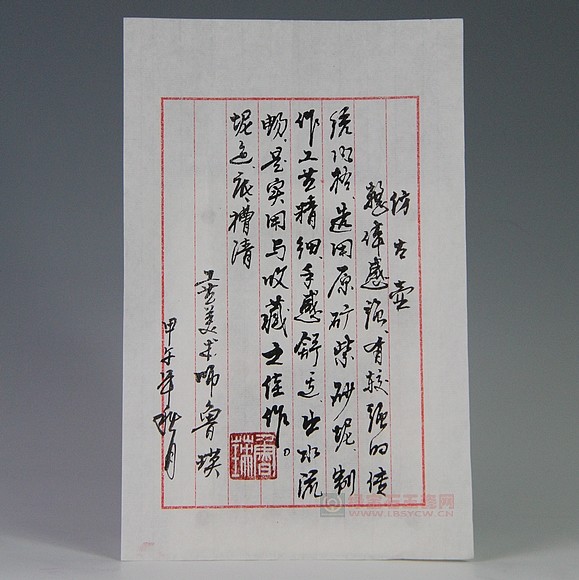 仿古壶
整体感强、有较强的传
统风格、选用原矿紫砂坭、制
作工艺精细、手感舒适、出水流
畅、是实用与收藏之佳作。
坭色、底槽清
工艺美术师鲁瑛
甲午年秋月
WWW.LBSYCW.CN